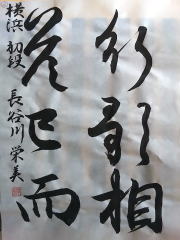 行歌相
答已而
横浜 初段 長谷川 栄美